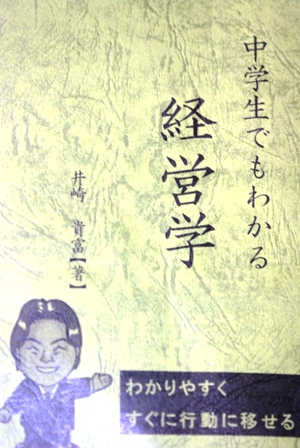 中学生でもわかる
経営学
井崎 貴富【著】
わかりやすく
すぐに行動に移せる